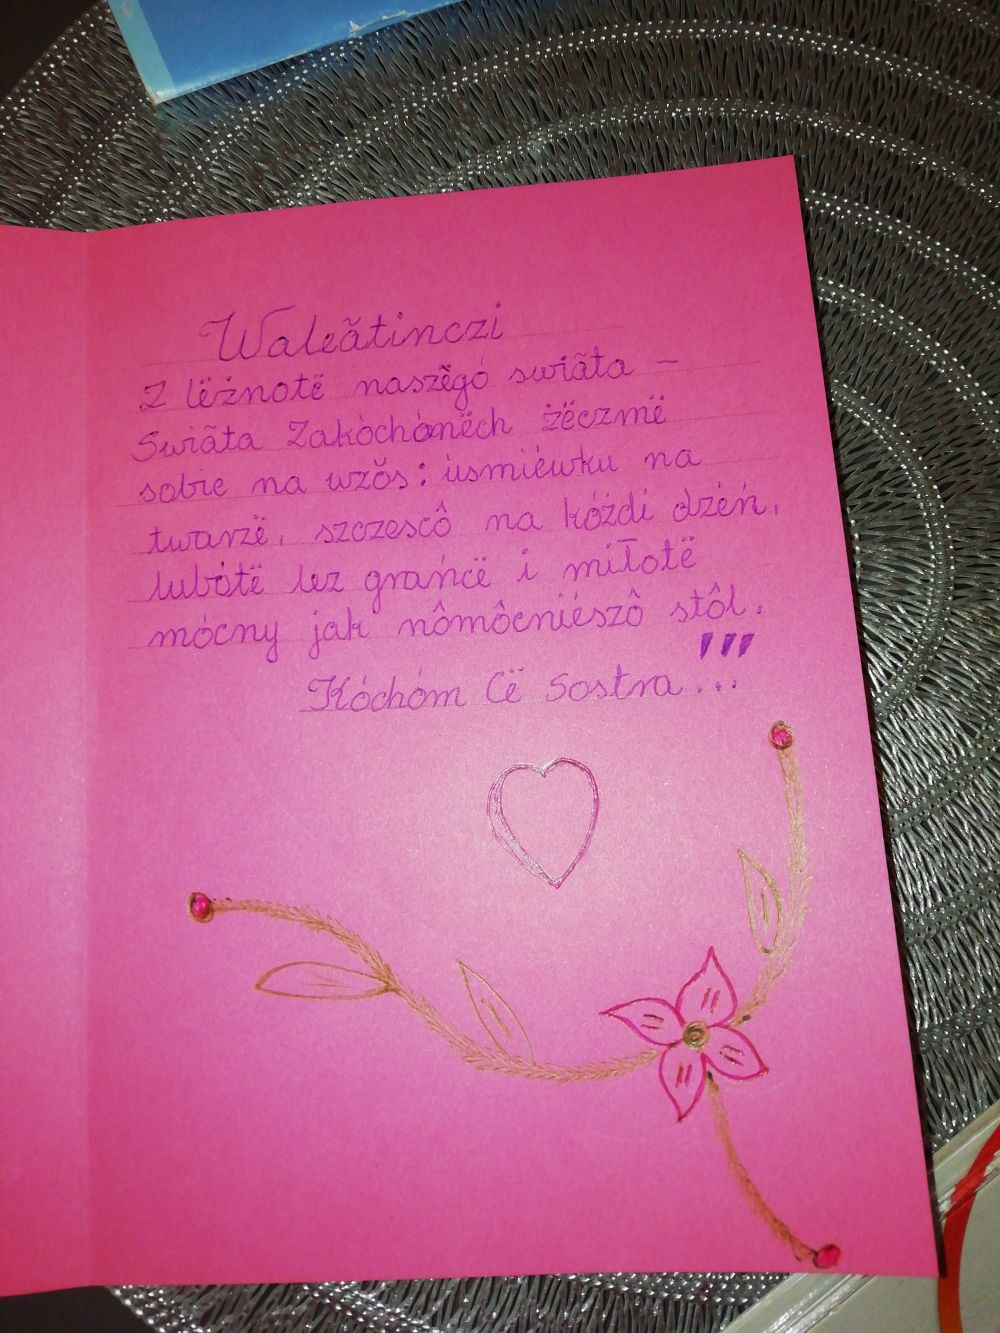 Waleãtinczi
Z lëżnotë naszëgó swiãta –
Swiãta Zakòchónëch żëczmë
sobie na wzôs: ùsmiéwku na
twarzë, szczescô na kóżdi dzéń,
lubòtë lez grańcë i miłotë
mócny jak nômôcniészô stôl.
Kóchóm Cë Sostra...!!!